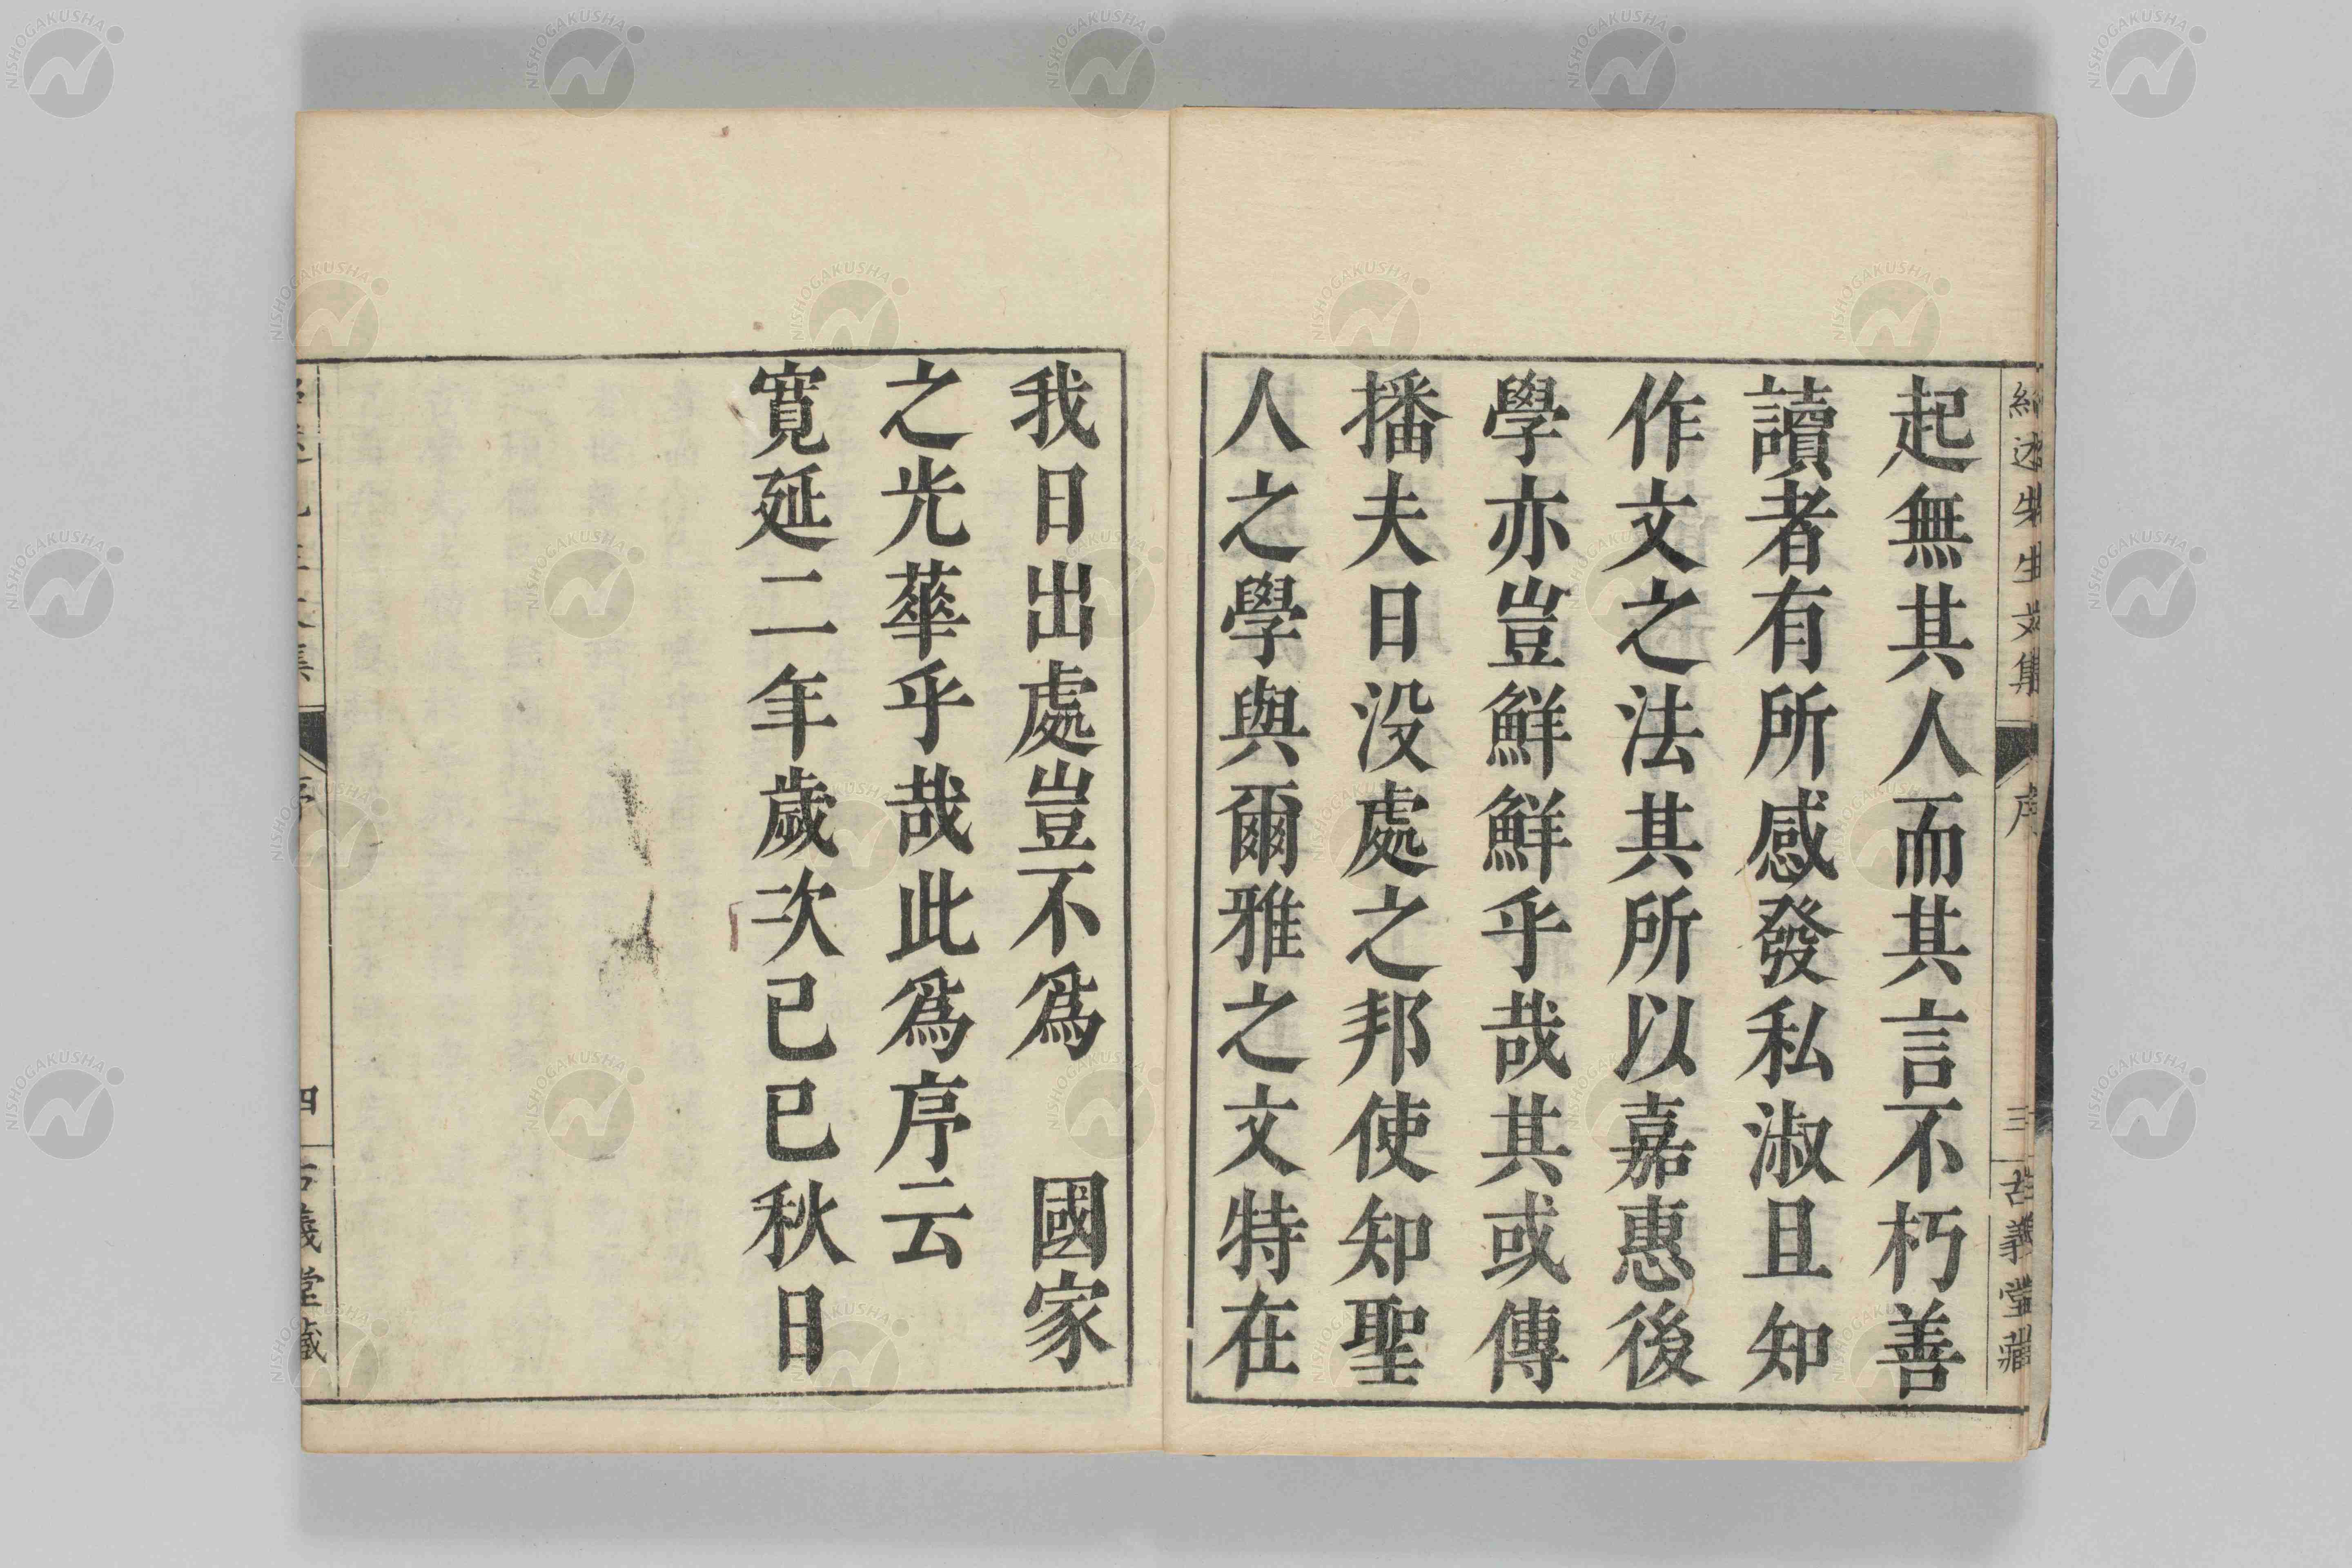 紹述先生文集 序 三 古義堂藏
起無其人而其言不朽善
讀者有所感發私淑且知
作文之法其所以嘉惠後
學亦豈鮮鮮乎哉其或傳
播夫日没處之邦使知聖
人之學與爾雅之文特在
我日出處豈不爲 國家
之光華乎哉此爲序云
寛延二年歲次己巳秋日
四 古義堂藏
NISHOGAKUSHA